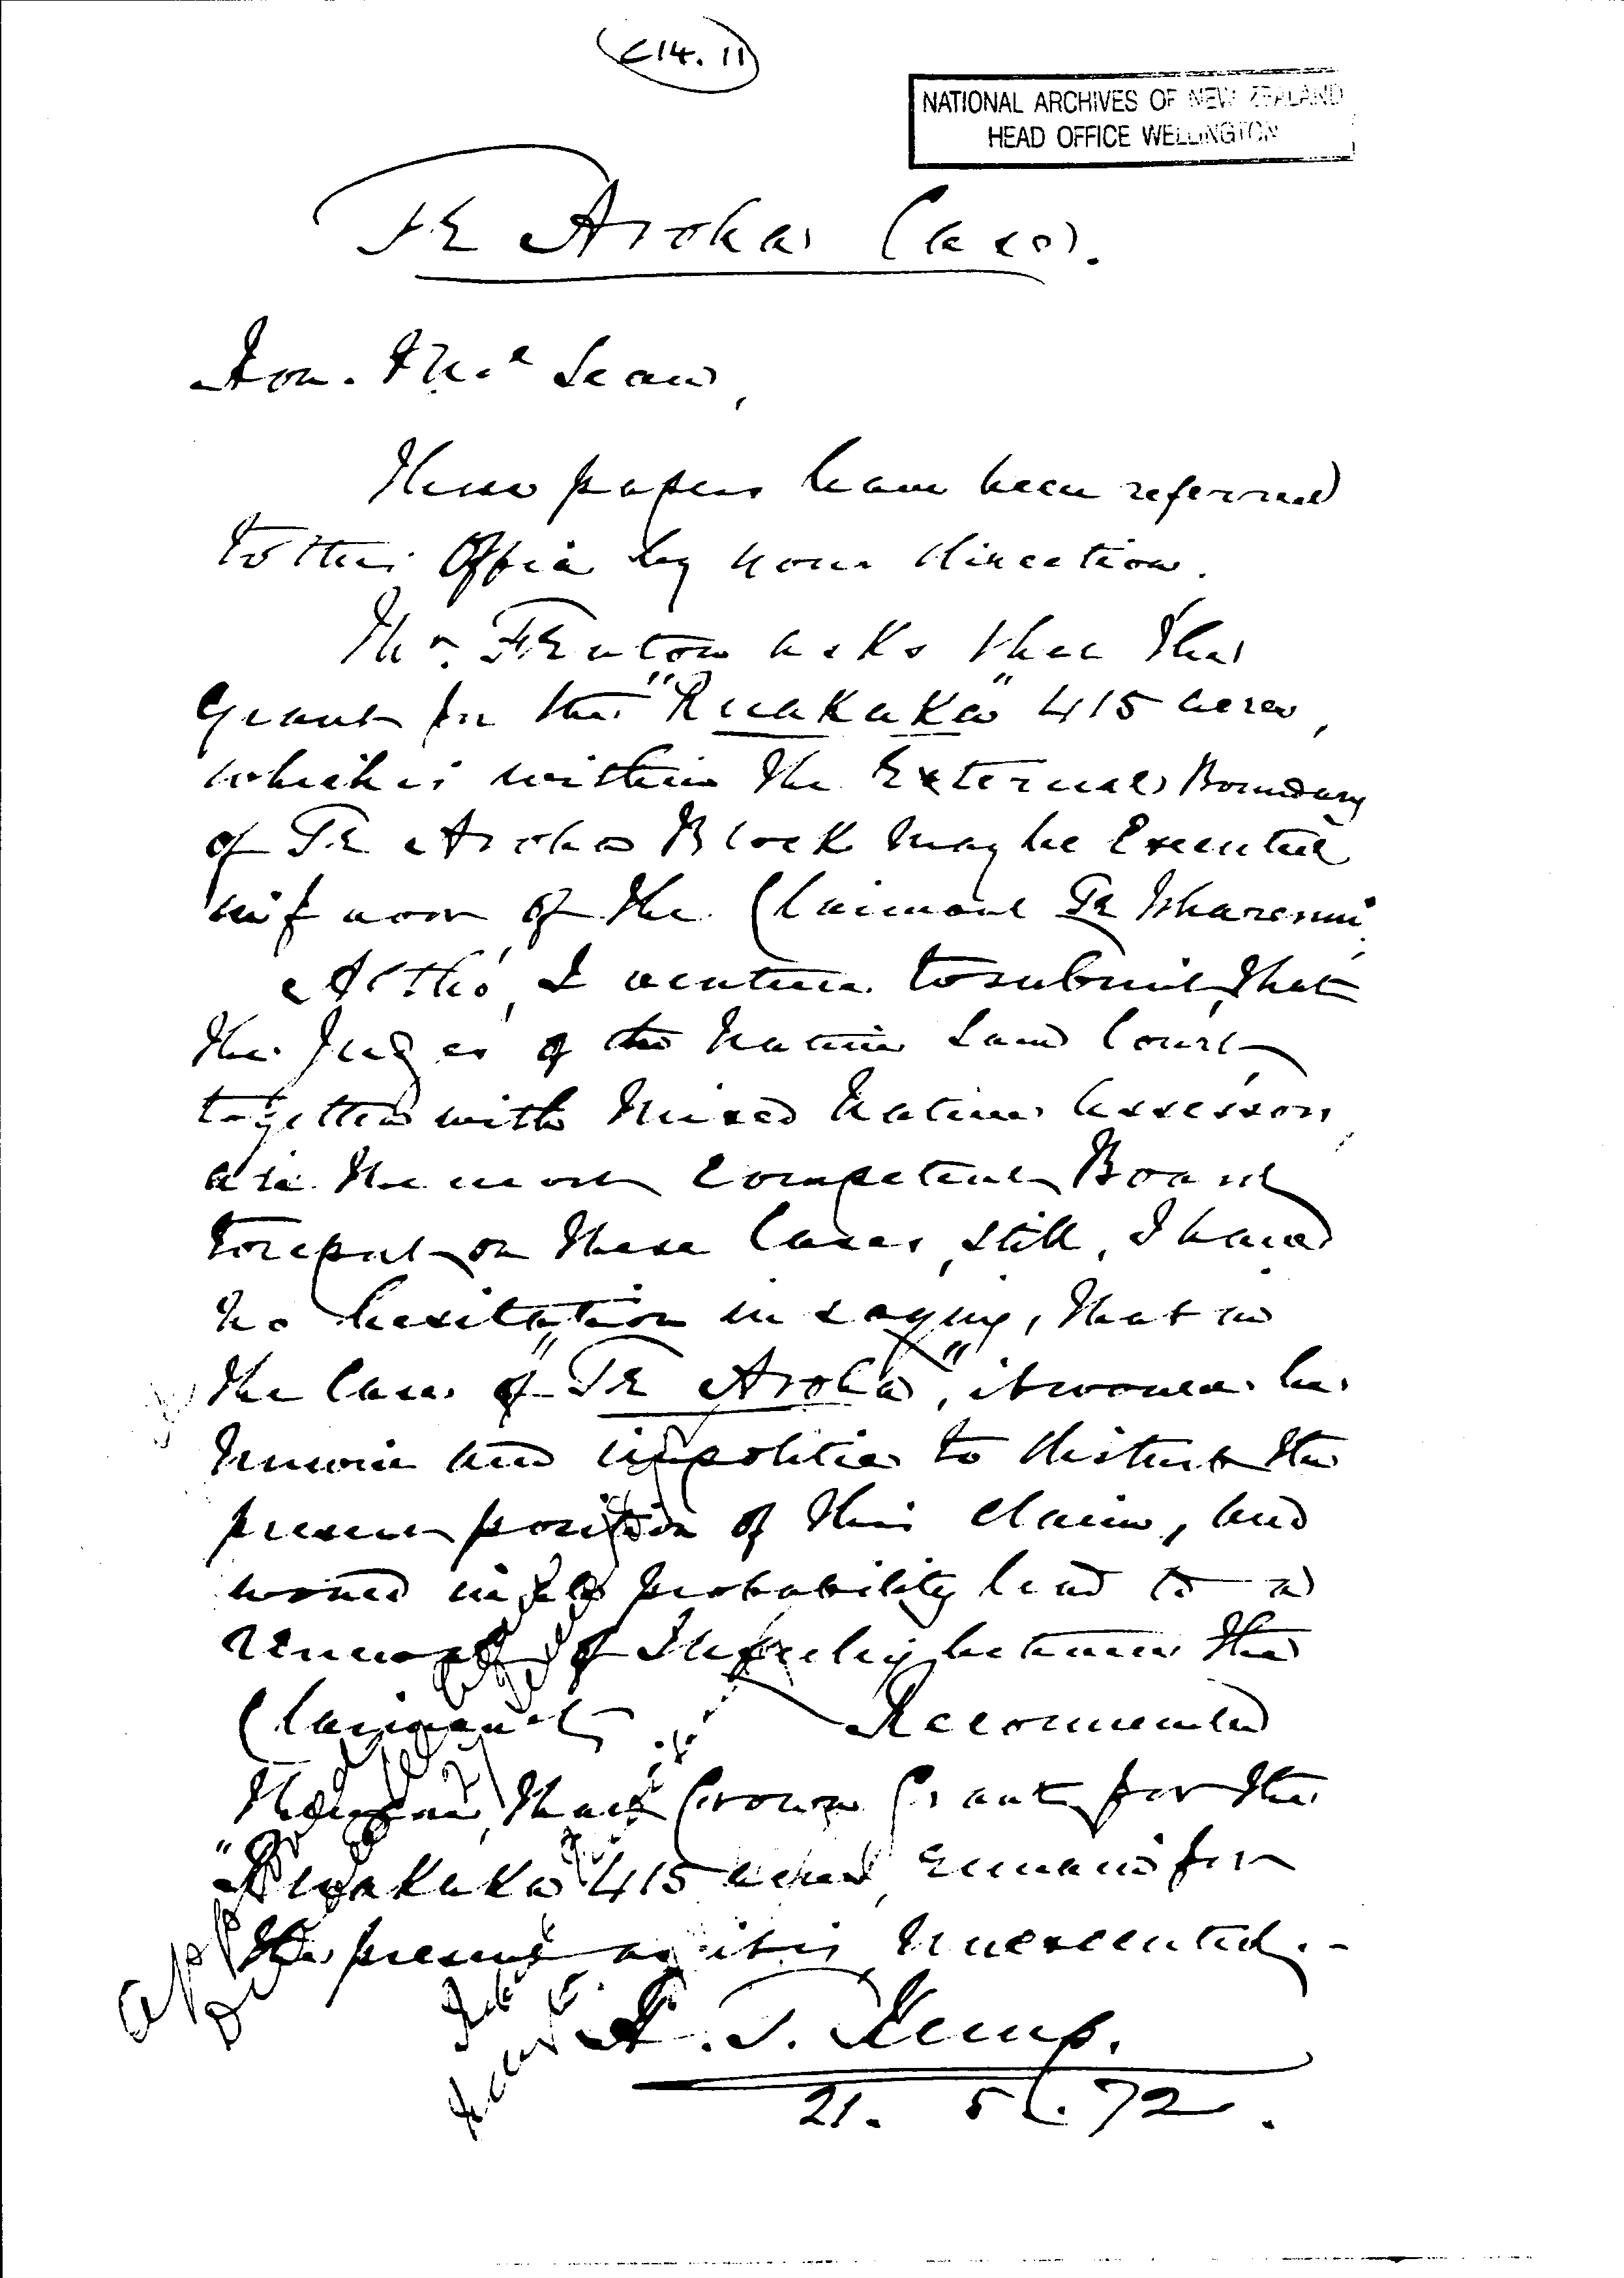 C14.11
NATIONAL ARCHIVES OF NEW ZEALAND
HEAD OFFICE WELLINGTON
Te Aroha Case.
Hon. Mr McLean,
These papers have been referred
to this Office by your direction.
Mr. Fenton asks that the
grant for the "Ruakaka" 415 acres,
which is within the External Boundary
of Te Aroha Block may be Executed
in favour of the Claimant Te Wharenui.
Altho', I venture to submit, that
the Judges of the Native Land Court,
together with mixed Native Assessors,
are the most Competent Board
to report on these Cases, still, I have
no hesitation in saying, that in
the Case of "Te Aroha", it would be
unwise and impolitic to disturb the
present position of this claim, and
would in all probability lead to a
renewal of Ill feeling between the
Claimants. Recommended
therefore, that Crown Grant for the
"Ruakaka" 415 acres, remain for
the present as it is, unexecuted.-
H. T. Kemp.
21. 5. 72.
approved